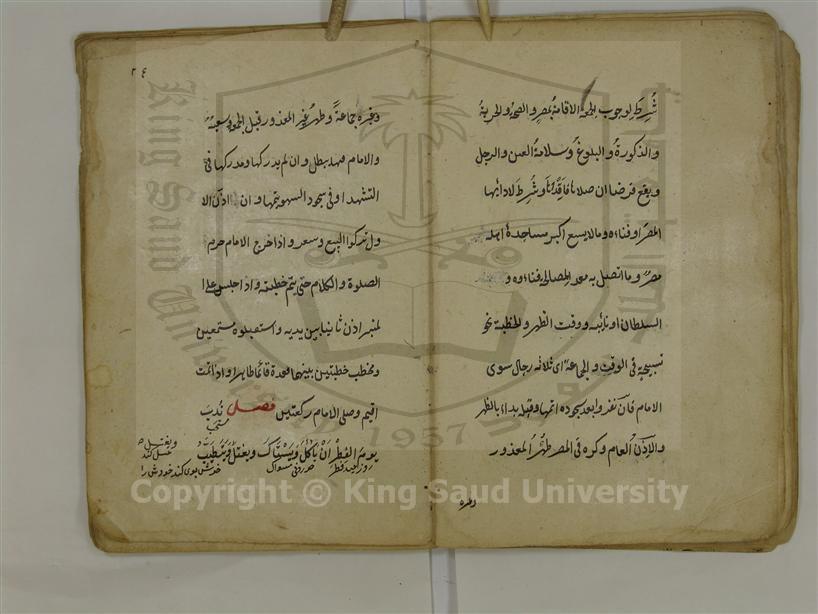 شُرِطَ لوجوب الجمعة الاقامة بمصر والصحة والحرية
والذكورة والبلوغ وسلامة العين والرجل
ويقع فرضا ان صلاها فاقدها وشرط لادائها
المصر او فناءه ومالا يسع اكبر مساجده اهله
مصر وما اتصل به معد المصالحه فناءه و
السلطان او نائبه ووقت الظهر والخطبة نحو
تسبيحة فى الوقت والجماعة اى ثلاثة رجال سوى
الامام فان نفروا بعد سجوده اتمها وقبله بداء بالظهر
والاذن العام وكره فى المصر ظهر المعذور
وغيره
٢٤
وغيره جماعةً وظهر غير المعذور قبل الجمعة وسعيه
والامام فيها يبطله وان لم يدركها ومدركها فى
التشهد او فى سجود السهو يتمها واذا اذن الا
ول تركوا البيع وسعوا واذا خرج الامام حرم
الصلوة والكلام حتى يتم خطبته واذا جلس على ا
لمنبر اذن ثانيا بين يديه واستقبلوه مستمعين
ويخطب خطبتين بينهما قعدة قائما طاهرا واذا تمت
اقيم وصلى الامام ركعتين فصل نُدِبَ
مستحب
يومَ الفطر اَنْ يَأكُلَ ويَسْتَاكَ ويغتسل ويَتَطَيَّبَ
روز عيد فطر
مسواك
خوش بوى كند خودش را
ويغتسل
غسل كند
King Saud University
1957
Copyright © King Saud University